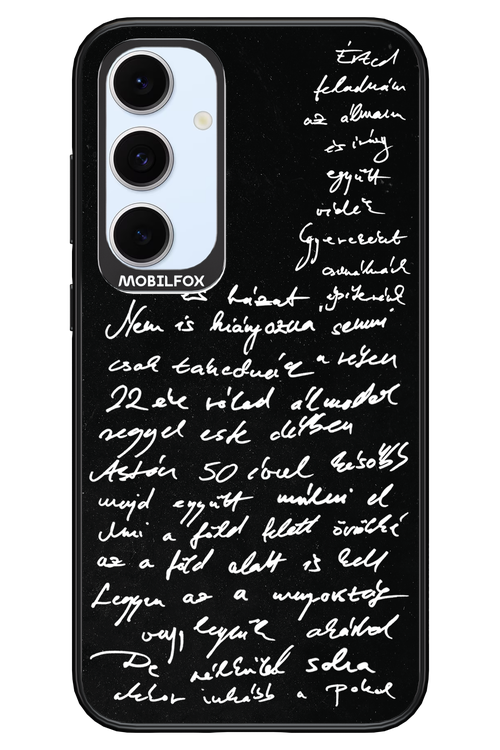 Érted
feladnám
az álmaim
és így
együtt
vidék
Gyerekeket
csinálnánk
MOBILFOX
és házat építenénk
Nem is hiányozna semmi
csak
22 éve rólad álmodok
reggel este délben
Aztán 50 évvel később
majd együtt múlni el
Ami a föld felett örökké
az a föld alatt is kell
Legyen az a mennyország
vagy legyünk akárhol
De nélküled soha
akkor inkább a pokol